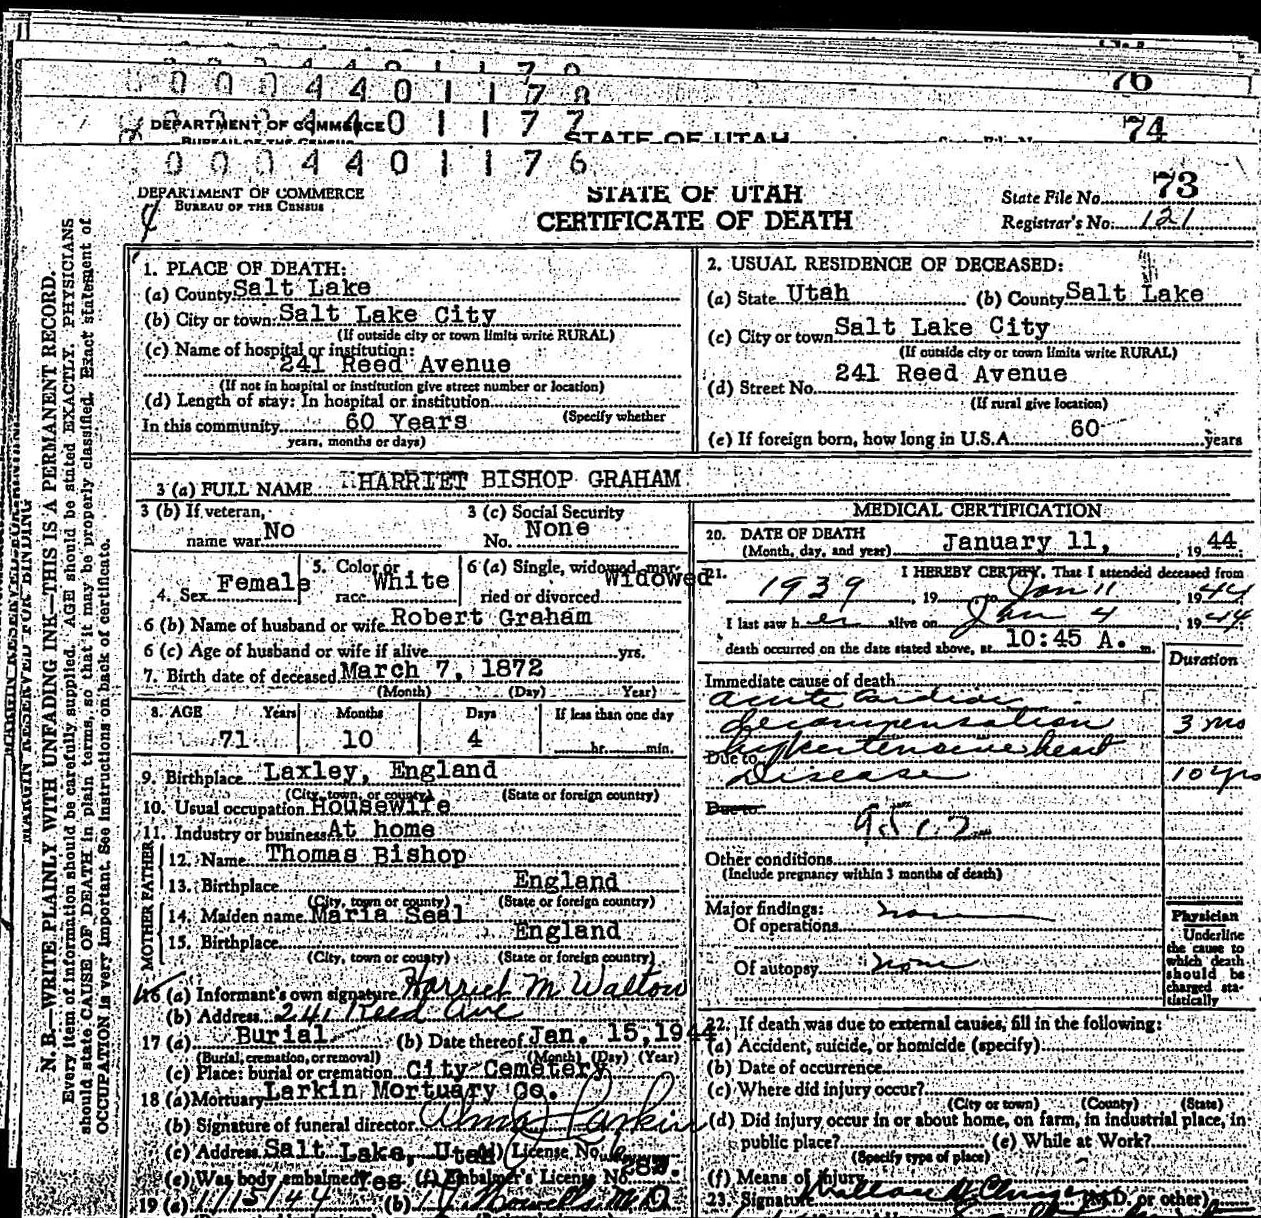 76
0 0 0 4 4 0 1 1 7 8
0 0 0 4 4 0 1 1 7 7
74
DEPARTMENT OF COMMERCE
BUREAU OF THE CENSUS
STATE OF UTAH
0 0 0 4 4 0 1 1 7 6
DEPARTMENT OF COMMERCE
BUREAU OF THE CENSUS
STATE OF UTAH
CERTIFICATE OF DEATH
State File No. 73
Registrar's No. 121
MARGIN RESERVED FOR BINDING
N. B.—WRITE PLAINLY WITH UNFADING INK—THIS IS A PERMANENT RECORD.
Every item of information should be carefully supplied. AGE should be stated EXACTLY. PHYSICIANS
should state CAUSE OF DEATH in plain terms, so that it may be properly classified. Exact statement of
OCCUPATION is very important. See instructions on back of certificate.
1. PLACE OF DEATH:
(a) County Salt Lake
(b) City or town Salt Lake City
(If outside city or town limits write RURAL)
(c) Name of hospital or institution:
241 Reed Avenue
(If not in hospital or institution give street number or location)
(d) Length of stay: In hospital or institution
(Specify whether
In this community 60 Years
years, months or days)
2. USUAL RESIDENCE OF DECEASED:
(a) State Utah (b) County Salt Lake
(c) City or town Salt Lake City
(If outside city or town limits write RURAL)
(d) Street No. 241 Reed Avenue
(If rural give location)
(e) If foreign born, how long in U.S.A. 60 years
3 (a) FULL NAME HARRIET BISHOP GRAHAM
3 (b) If veteran, name war No
3 (c) Social Security No. None
4. Sex Female
5. Color or race White
6 (a) Single, widowed, married or divorced Widowed
6 (b) Name of husband or wife Robert Graham
6 (c) Age of husband or wife if alive yrs.
7. Birth date of deceased March 7, 1872
(Month) (Day) Year)
8. AGE Years Months Days If less than one day
71 10 4 hr. min.
9. Birthplace Laxley, England
(City, town, or county) (State or foreign country)
10. Usual occupation Housewife
11. Industry or business At home
FATHER
12. Name Thomas Bishop
13. Birthplace England
(City, town or county) (State or foreign country)
MOTHER
14. Maiden name Maria Seal
15. Birthplace England
(City, town or county) (State or foreign country)
16 (a) Informant's own signature Harriet M Walton
(b) Address 241 Reed Ave
17 (a) Burial (b) Date thereof Jan. 15, 1944
(Burial, cremation, or removal) (Month) (Day) (Year)
(c) Place: burial or cremation City Cemetery
18 (a) Mortuary Larkin Mortuary Co.
(b) Signature of funeral director Alma Larkin
(c) Address Salt Lake, Utah (d) License No.
(e) Was body embalmed Yes (f) Embalmer's License No.
19 (a) 1/15/44 (b) M.D.
MEDICAL CERTIFICATION
20. DATE OF DEATH
(Month, day, and year) January 11, 1944
21. I HEREBY CERTIFY, That I attended deceased from
1939 19 to Jan 11, 1944
I last saw her alive on Jan 4, 1944
death occurred on the date stated above, at 10:45 A. m.
Duration
Immediate cause of death
acute cardiac
decompensation 3 mo
Due to hypertensive heart
Disease 10 yrs
Due to
Other conditions
(Include pregnancy within 3 months of death)
Major findings:
Of operations none
Of autopsy none
Physician
Underline
the cause to
which death
should be
charged statistically
22. If death was due to external causes, fill in the following:
(a) Accident, suicide, or homicide (specify)
(b) Date of occurrence
(c) Where did injury occur?
(City or town) (County) (State)
(d) Did injury occur in or about home, on farm, in industrial place, in
public place? (e) While at Work?
(Specify type of place)
(f) Means of Injury
23. Signature (M.D. or other)